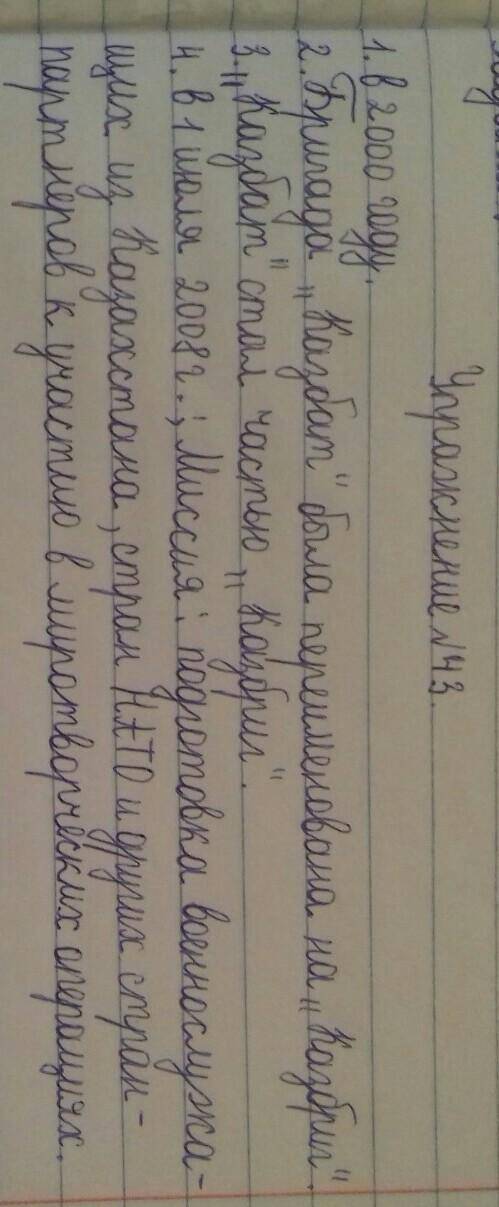 Упражнение №43.
1. В 2000 году.
2. Бригада „Казбат“ была переименована на „Казбриг“.
3. „Казбат“ стал частью „Казбриг“.
4. В 1 июля 2008г.; Миссия: подготовка военнослужа-
щих из Казахстана, стран НАТО и других стран-
партнеров к участию в миротворческих операциях.